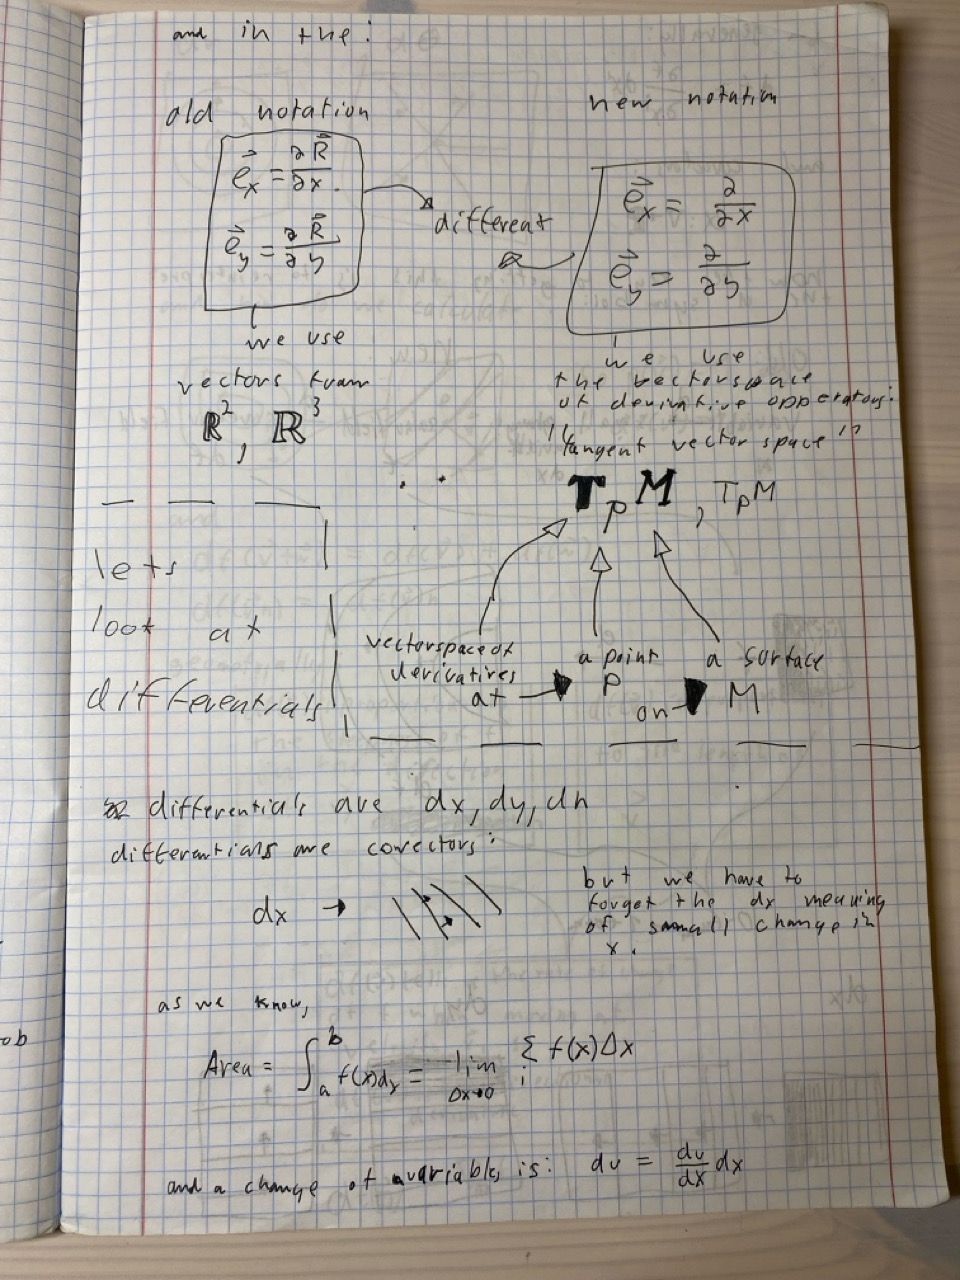 and in the:
old notation
new notation
e⃗x = ∂R⃗/∂x.
e⃗y = ∂R⃗/∂y
different
e⃗x = ∂/∂x
e⃗y = ∂/∂y
we use
vectors from
ℝ², ℝ³
we use
the vectorspace
of derivative opperators:
"tangent vector space"
TpM, TpM
lets
look at
differentials
vectorspace of
derivatives
at
a point
p
on
a surface
M
differentials are dx, dy, dh
differentians are covectors:
dx →
but we have to
forget the dx meaning
of small change in
x.
as we know,
ob
Area = ∫ₐᵇ f(x)dx = lim Δx→0 Σ i f(x)Δx
and a change of variable, is: du = du/dx dx